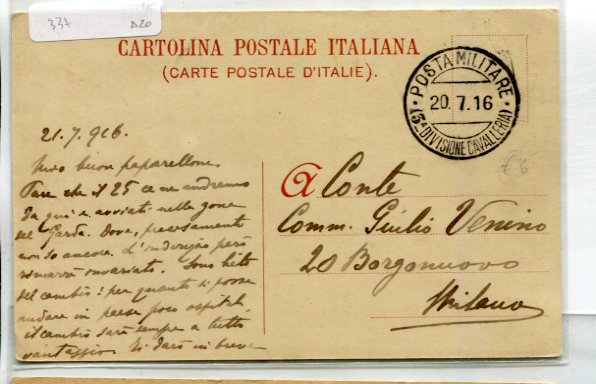 337 D20
CARTOLINA POSTALE ITALIANA
(CARTE POSTALE D'ITALIE).
POSTA MILITARE
20.7.16
(3ª DIVISIONE CAVALLERIA)
21.7.916.
£6
Mio buon paparellone
Pare che il 25 ce ne andremo
da qui e avviati nella zona
del Garda. Dove, precisamente
non so ancora. L'indirizzo però
rimarrà invariato. Sono lieto
del cambio: per quanto si possa
andare in paese poco ospitale
il cambio sarà sempre a tutto
vantaggio. Ti darò in breve
A Conte
Comm. Giulio Venino
20 Borgonuovo
Milano